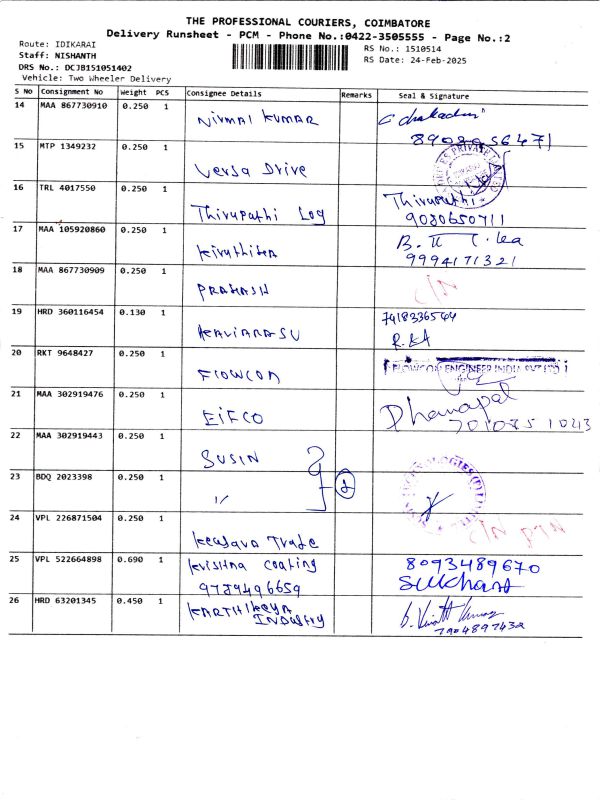 THE PROFESSIONAL COURIERS, COIMBATORE
Delivery Runsheet - PCM - Phone No.:0422-3505555 - Page No.:2
Route: IDIKARAI
RS No.: 1510514
Staff: NISHANTH
RS Date: 24-Feb-2025
DRS No.: DCJB151051402
Vehicle: Two Wheeler Delivery
S No Consignment No Weight PCS Consignee Details Remarks Seal & Signature
14 MAA 867730910 0.250 1 Nirmal Kumar
15 MTP 1349232 0.250 1 Versa Drive
16 TRL 4017550 0.250 1 Thirupathi Log Thirupathi
9080650711
17 MAA 105920860 0.250 1 Kiruthika
9994171321
18 MAA 867730909 0.250 1 PRAKASH C/N
19 HRD 360116454 0.130 1 KAVIARASU 7418336544
20 RKT 9648427 0.250 1 FLOWCON FLOWCON ENGINEER INDIA PVT LTD
21 MAA 302919476 0.250 1 EIFCO Dhanapal
22 MAA 302919443 0.250 1 SUSIN
23 BDQ 2023398 0.250 1 "
24 VPL 226871504 0.250 1 Kesava Trade C/N
25 VPL 522664898 0.690 1 Krishna Coating 8093489670
9789496659
26 HRD 63201345 0.450 1 KARTHIKEYA
INDUSTRY
7904897432